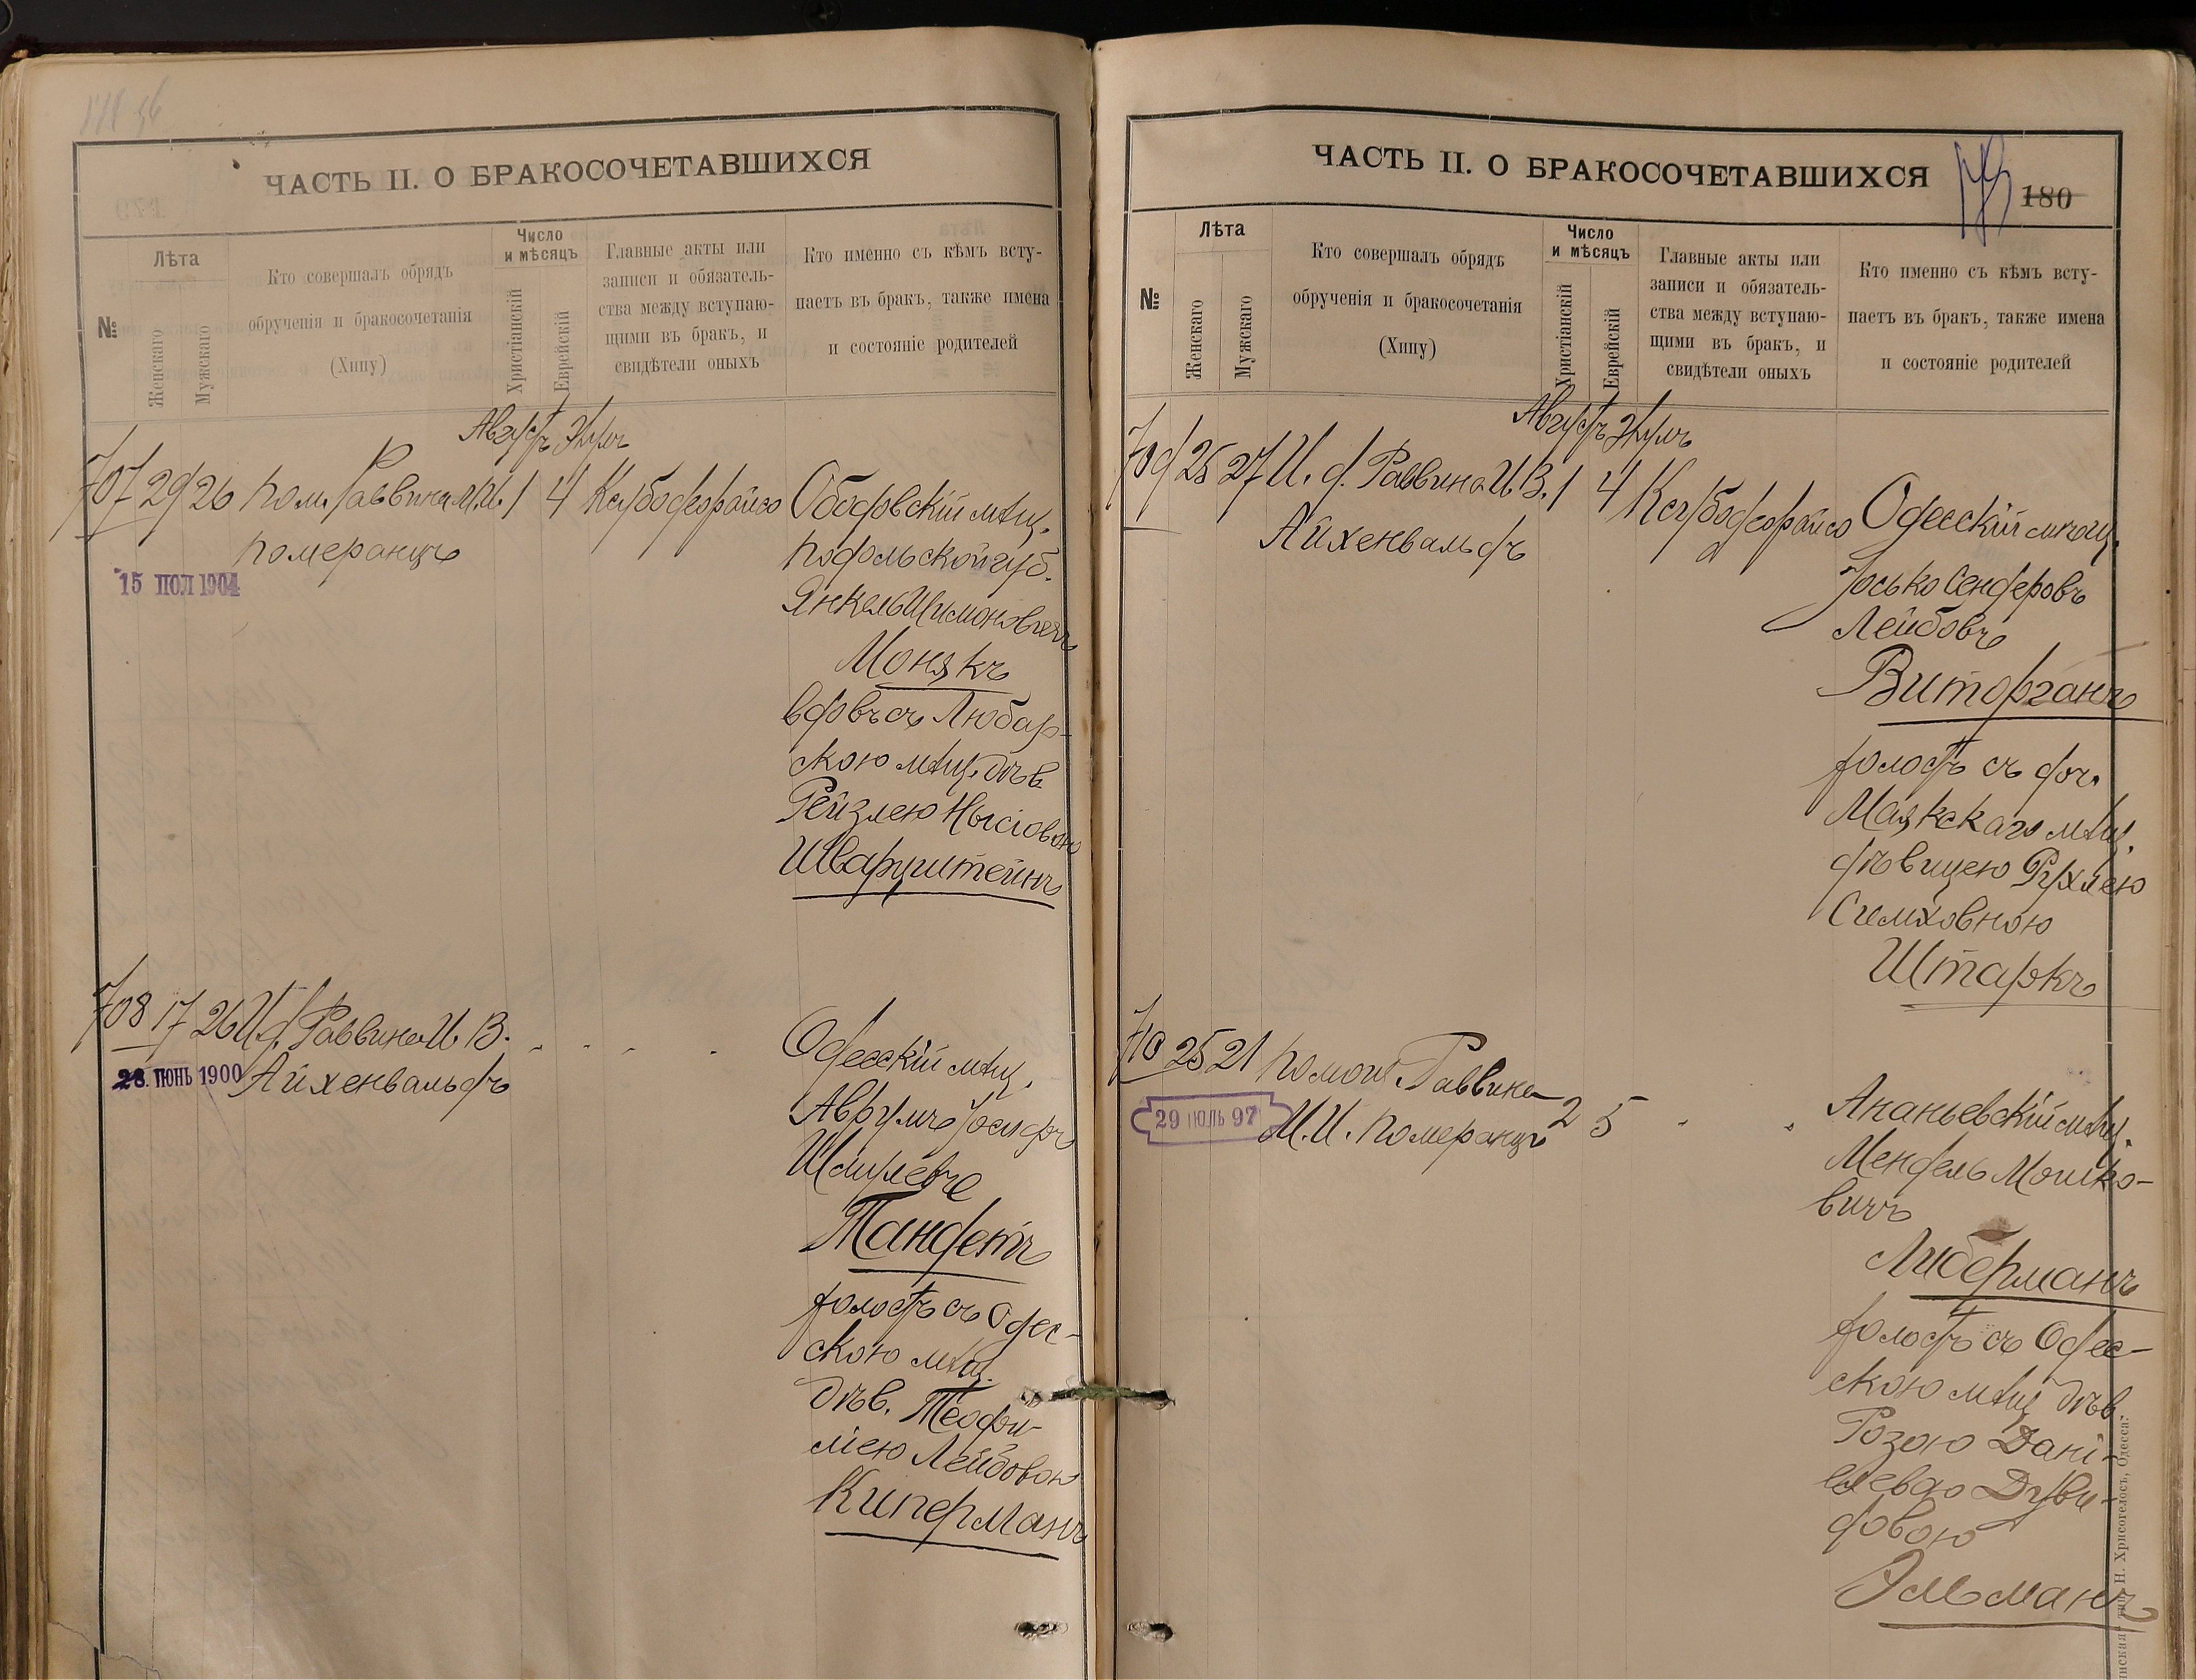 ЧАСТЬ II. О БРАКОСОЧЕТАВШИХСЯ
№
Лѣта
Женскаго
Мужскаго
Кто совершалъ обрядъ
обрученія и бракосочетанія
(Хипу)
Число
и мѣсяцъ
Христіанскій
Еврейскій
Главные акты или
записи и обязатель-
ства между вступаю-
щими въ бракъ, и
свидѣтели оныхъ
Кто именно съ кѣмъ всту-
паетъ въ бракъ, также имена
и состояніе родителей
Августъ
707 29 26 Пом. Раввина М.И. 1 4
Померанцъ
15 ІЮЛ 1904
мѣщ.
Подольской губ.
Янкель Шимоновичъ
Монякъ
вдовъ съ Любар-
скою мѣщ. дѣв
Рейзлею Нысіовою
Шварцштейнъ
708 17 26 И. д. Раввина И. В.
Айхенвальдъ
28. ІЮНЬ 1900
Одесскій мѣщ.
Аврумъ Іосифъ
Шмулевъ
Тандетъ
холостъ съ Одес-
скою мѣщ.
дѣв. Теофи-
ліею Лейбовою
Киперманъ
ЧАСТЬ II. О БРАКОСОЧЕТАВШИХСЯ
180
№
Лѣта
Женскаго
Мужскаго
Кто совершалъ обрядъ
обрученія и бракосочетанія
(Хипу)
Число
и мѣсяцъ
Христіанскій
Еврейскій
Главные акты или
записи и обязатель-
ства между вступаю-
щими въ бракъ, и
свидѣтели оныхъ
Кто именно съ кѣмъ всту-
паетъ въ бракъ, также имена
и состояніе родителей
Августъ
709 25 27 И. д. Раввина И. В. 1 4
Айхенвальдъ
Одесскій мѣщ.
Іосько Сендеровъ
Лейбовъ
Виторганъ
холостъ съ доч.
Маякскаго мѣщ.
дѣвицею Рухлею
Симховною
Штаркъ
710 25 21 Помощ. Раввина
М. И. Померанцъ 2 5
29 ІЮЛЬ 97
Ананьевскій мѣщ.
Мендель Мошко-
вичъ
Либерманъ
холостъ съ Одес-
скою мѣщ. дѣв.
Розою Дані-
елевою Дуви-
довою
Эльманъ
Н. Хрисогелосъ, Одесса.